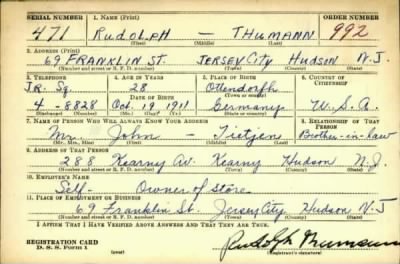 SERIAL NUMBER 1. NAME (Print) ORDER NUMBER
471 RUDOLPH — THUMANN 992
(First) (Middle) (Last)
2. ADDRESS (Print)
69 FRANKLIN ST. JERSEY CITY HUDSON N.J.
(Number and street or R. F. D. number) (Town) (County) (State)
3. TELEPHONE 4. AGE IN YEARS 5. PLACE OF BIRTH 6. COUNTRY OF CITIZENSHIP
Jr. Sq. 28 Ottendorf
DATE OF BIRTH (Town or county)
4-8828 Oct. 19 1911 Germany U.S.A.
(Exchange) (Number) (Mo.) (Day) (Yr.) (State or country)
7. NAME OF PERSON WHO WILL ALWAYS KNOW YOUR ADDRESS 8. RELATIONSHIP OF THAT PERSON
Mr. John — Tietjen Brother-in-law
(Mr., Mrs., Miss) (First) (Middle) (Last)
9. ADDRESS OF THAT PERSON
288 Kearny Av. Kearny Hudson N.J.
(Number and street or R. F. D. number) (Town) (County) (State)
10. EMPLOYER'S NAME
Self- Owner of store
11. PLACE OF EMPLOYMENT OR BUSINESS
69 Franklin St. Jersey City Hudson N-J
(Number and street or R. F. D. number) (Town) (County) (State)
I AFFIRM THAT I HAVE VERIFIED ABOVE ANSWERS AND THAT THEY ARE TRUE.
REGISTRATION CARD Rudolph Thumann
D. S. S. Form 1 (over) (Registrant's signature)